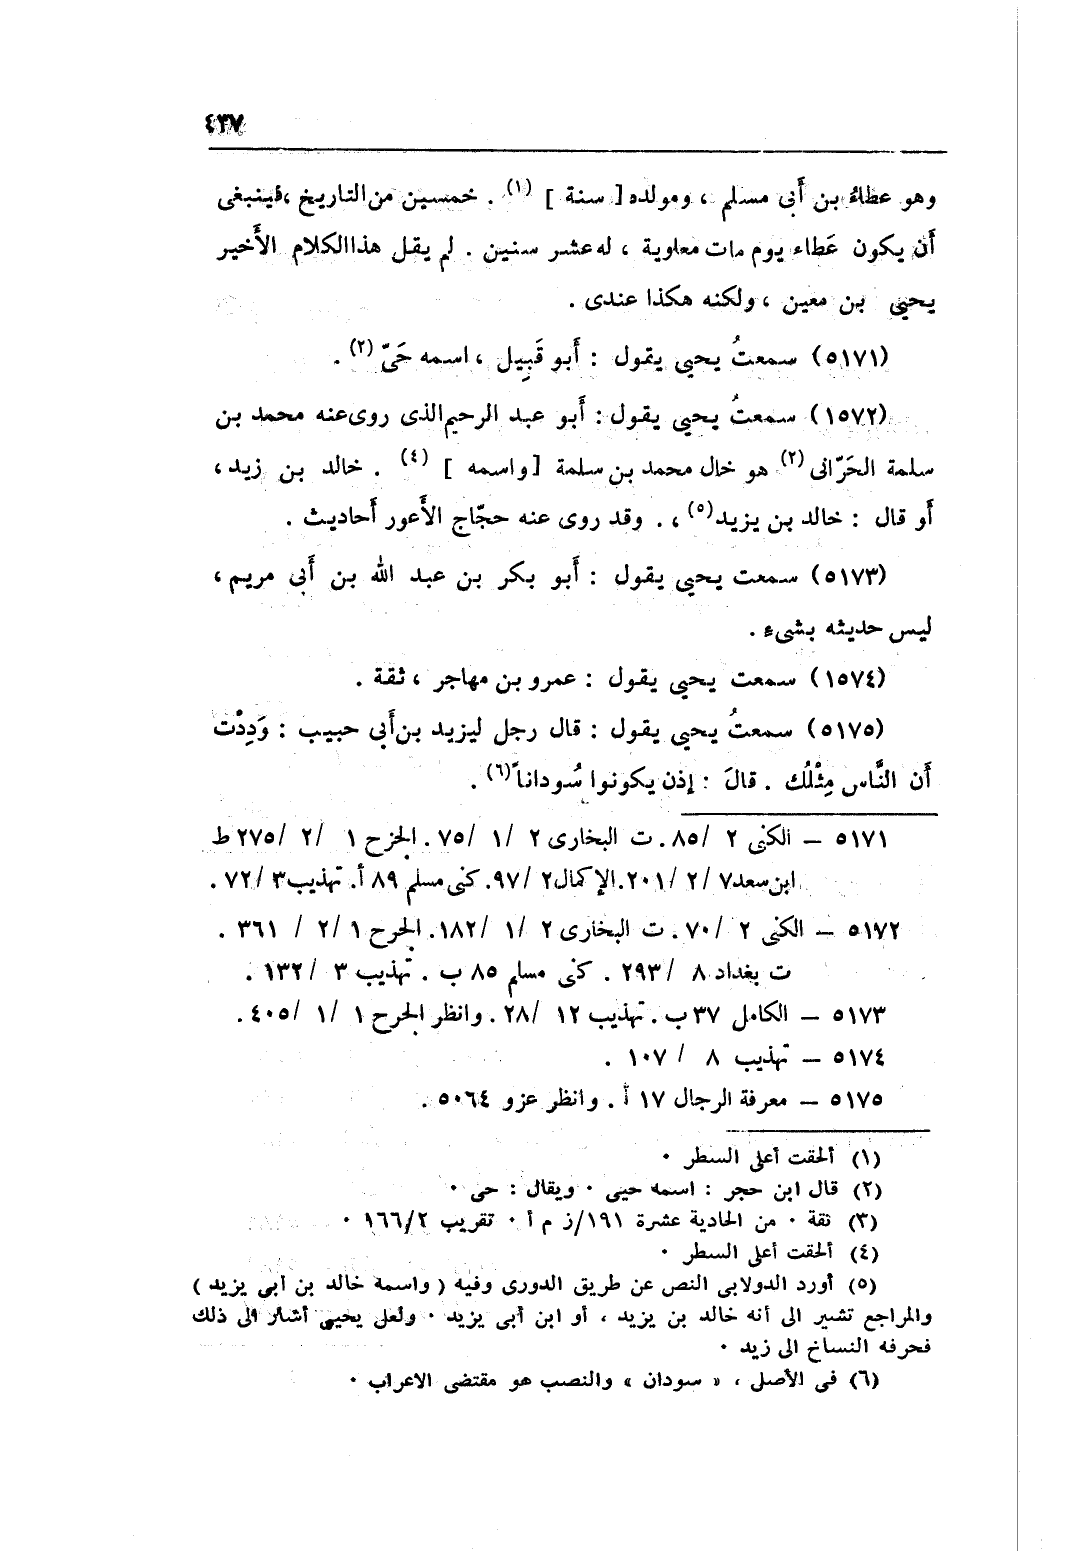 ٤٣٧
وهو عطاءُ بن أَبى مسلم ، ومولده [ سنة ] (١) . خمسين من التاريخ ، فينبغى
أَن يكون عَطاء يوم مات معاوية ، له عشر سنين . لم يقل هذا الكلام الأَخير
يحيى بن معين ، ولكنه هكذا عندى .
(٥١٧١) سمعتُ يحيى يقول : أَبو قَبِيل ، اسمه حَىّ (٢) .
(١٥٧٢) سمعتُ يحيى يقول : أَبو عبد الرحيم الذى روى عنه محمد بن
سلمة الحَرّانى (٢) هو خال محمد بن سلمة [ واسمه ] (٤) . خالد بن زيد ،
أَو قال : خالد بن يزيد (٥) ، . وقد روى عنه حجّاج الأَعور أَحاديث .
(٥١٧٣) سمعت يحيى يقول : أَبو بكر بن عبد الله بن أَبى مريم ،
ليس حديثه بشىء .
(١٥٧٤) سمعت يحيى يقول : عمرو بن مهاجر ، ثقة .
(٥١٧٥) سمعتُ يحيى يقول : قال رجل ليزيد بن أَبى حبيب : وَدِدْت
أَن النَّاس مِثْلُك . قالَ : إذن يكونوا سُوداناً (٦) .
٥١٧١ – الكنى ٢ /٨٥. ت البخارى ٢ /١ /٧٥. الجرح ١ /٢ /٢٧٥ ط
ابن سعد ٧ /٢ /٢٠١. الإكمال ٢ /٩٧. كنى مسلم ٨٩ أ. تهذيب ٣ /٧٢ .
٥١٧٢ – الكنى ٢ /٧٠ . ت البخارى ٢ /١ /١٨٢. الجرح ١ /٢ / ٣٦١ .
ت بغداد ٨ /٢٩٣ . كنى مسلم ٨٥ ب . تهذيب ٣ /١٣٢ .
٥١٧٣ – الكامل ٣٧ ب . تهذيب ١٢ /٢٨ . وانظر الجرح ١ /١ /٤٠٥ .
٥١٧٤ – تهذيب ٨ / ١٠٧ .
٥١٧٥ – معرفة الرجال ١٧ أ . وانظر عزو ٥٠٦٤ .
(١) ألحقت أعلى السطر ٠
(٢) قال ابن حجر : اسمه حيى ٠ ويقال : حى ٠
(٣) ثقة ٠ من الحادية عشرة ١٩١/ز م أ ٠ تقريب ١٦٦/٢ ٠
(٤) ألحقت أعلى السطر ٠
(٥) أورد الدولابى النص عن طريق الدورى وفيه ( واسمه خالد بن أبى يزيد )
والمراجع تشير الى أنه خالد بن يزيد ، أو ابن أبى يزيد ٠ ولعل يحيى أشار الى ذلك
فحرفه النساخ الى زيد ٠
(٦) فى الأصل ، « سودان » والنصب هو مقتضى الاعراب ٠